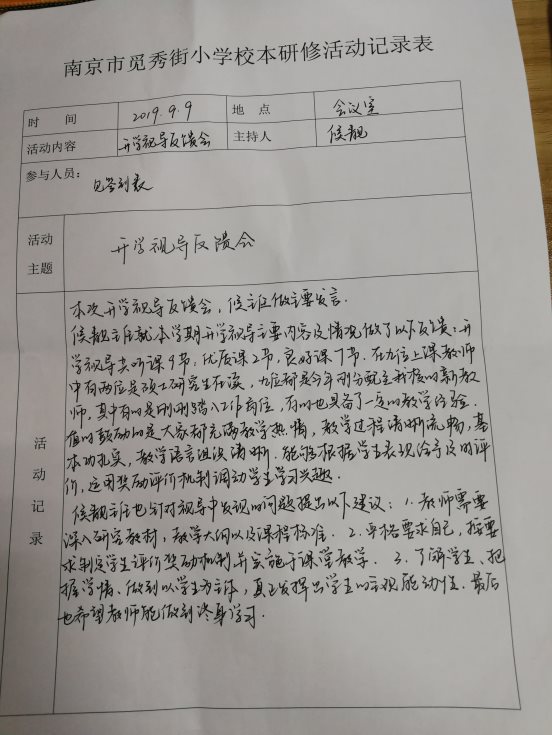 南京市觅秀街小学校本研修活动记录表
时 间 2019.9.9 地 点 会议室
活动内容 开学视导反馈会 主持人 侯靓
参与人员：
见签到表
活动主题 开学视导反馈会
活动记录
本次开学视导反馈会，侯主任做主要发言．
侯靓主任就本学期开学视导主要内容及情况做了以下反馈：开
学视导共听课9节，优质课2节，良好课7节．在九位上课教师
中有两位是硕士研究生在读，九位都是今年刚分配至我校的新教
师，其中有的是刚刚踏入工作岗位，有的也具备了一定的教学经验．
值得鼓励的是大家都充满教学热情，教学过程清晰流畅，基
本功扎实，教学语言组织清晰．能够根据学生表现给予及时评
价，运用奖励评价机制调动学生学习兴趣．
侯靓主任也针对视导中发现的问题提出以下建议：1.教师需要
深入研究教材，教学大纲以及课程标准．2.严格要求自己，按要
求制定学生评价奖励机制并实施于课堂教学．3.了解学生、把
握学情、做到以学生为主体，真正发挥出学生的主观能动性．最后
也希望教师能做到终身学习．